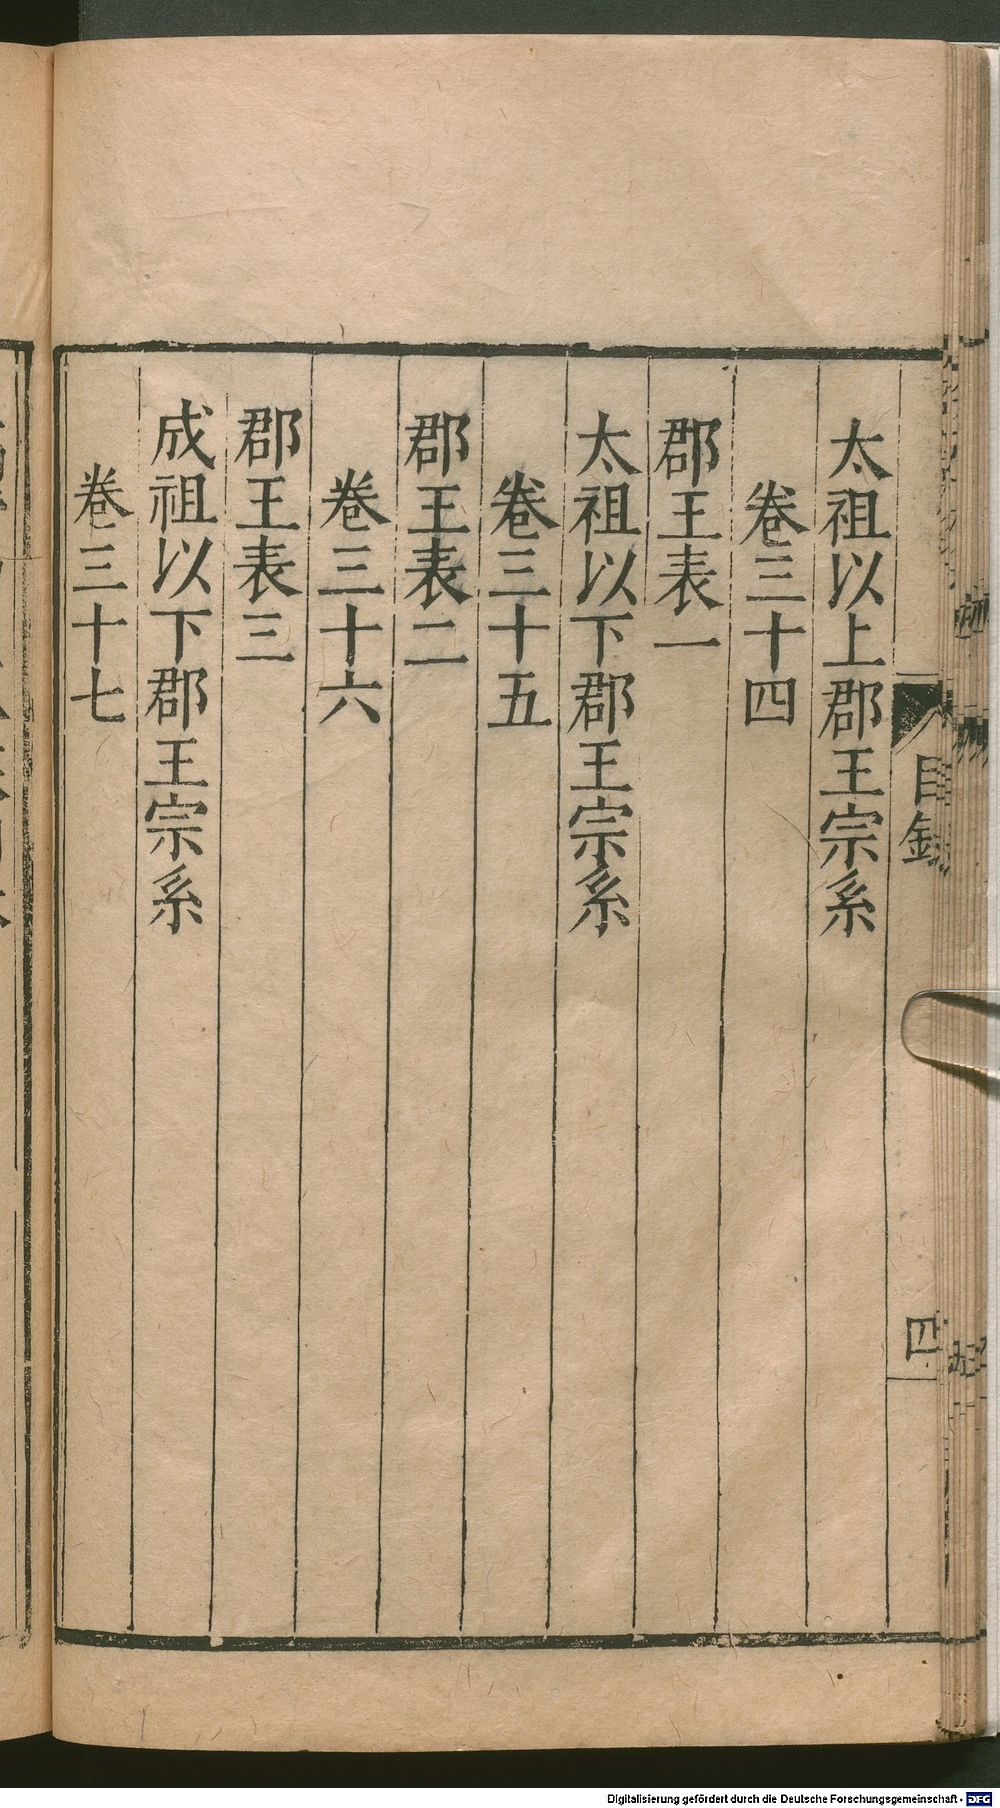 目錄
四
太祖以上郡王宗系
卷三十四
郡王表一
太祖以下郡王宗系
卷三十五
郡王表二
卷三十六
郡王表三
成祖以下郡王宗系
卷三十七
Digitalisierung gefördert durch die Deutsche Forschungsgemeinschaft - DFG